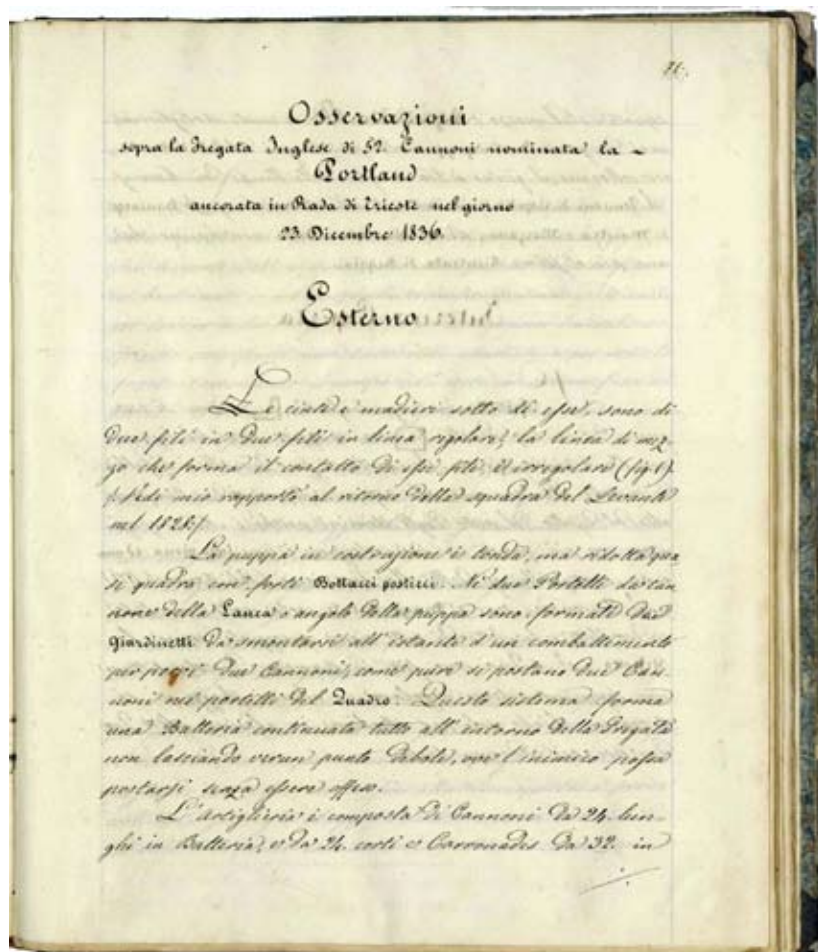 Osservazioni
sopra la Fregata Inglese di 52. Cannoni nominata la ~
Portland
ancorata in Rada di Trieste nel giorno
23. Dicembre 1836.
Esterno
Le cinte e madieri sotto di esse, sono di
due fili in due fili in linea regolare; la linea di mez-
zo che forma il contatto di essi fili, è irregolare (fig. 1).
/: Vedi mio rapporto al ritorno della squadra del Levante
nel 1828:/
La puppa in costruzione è tonda, ma ridotta qua
si quadra con forti Bottacci posticci. Ne' due Portelli da can
none della Lanca o angolo della puppa sono formati due
Giardinetti da smontarsi all'istante d'un combattimento
per porvi due Cannoni, come pure si postano due Can-
noni nei portelli del Quadro. Questo sistema forma
una Batteria continuata tutto all'intorno della Fregata
non lasciando verun punto debole, ove l'inimico possa
postarsi senza essere offeso.
L'artiglieria è composta di Cannoni da 24. lun-
ghi in Batteria, e da 24. corti e Carronades da 32. in